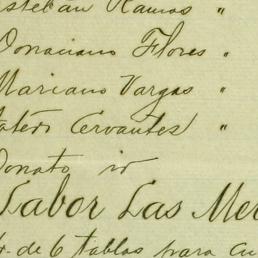 Esteban Ramos "
Donaciano Flores "
Mariano Vargas "
Cervantes "
Donato id
Labor Las Mer
de 6 tablas para cu